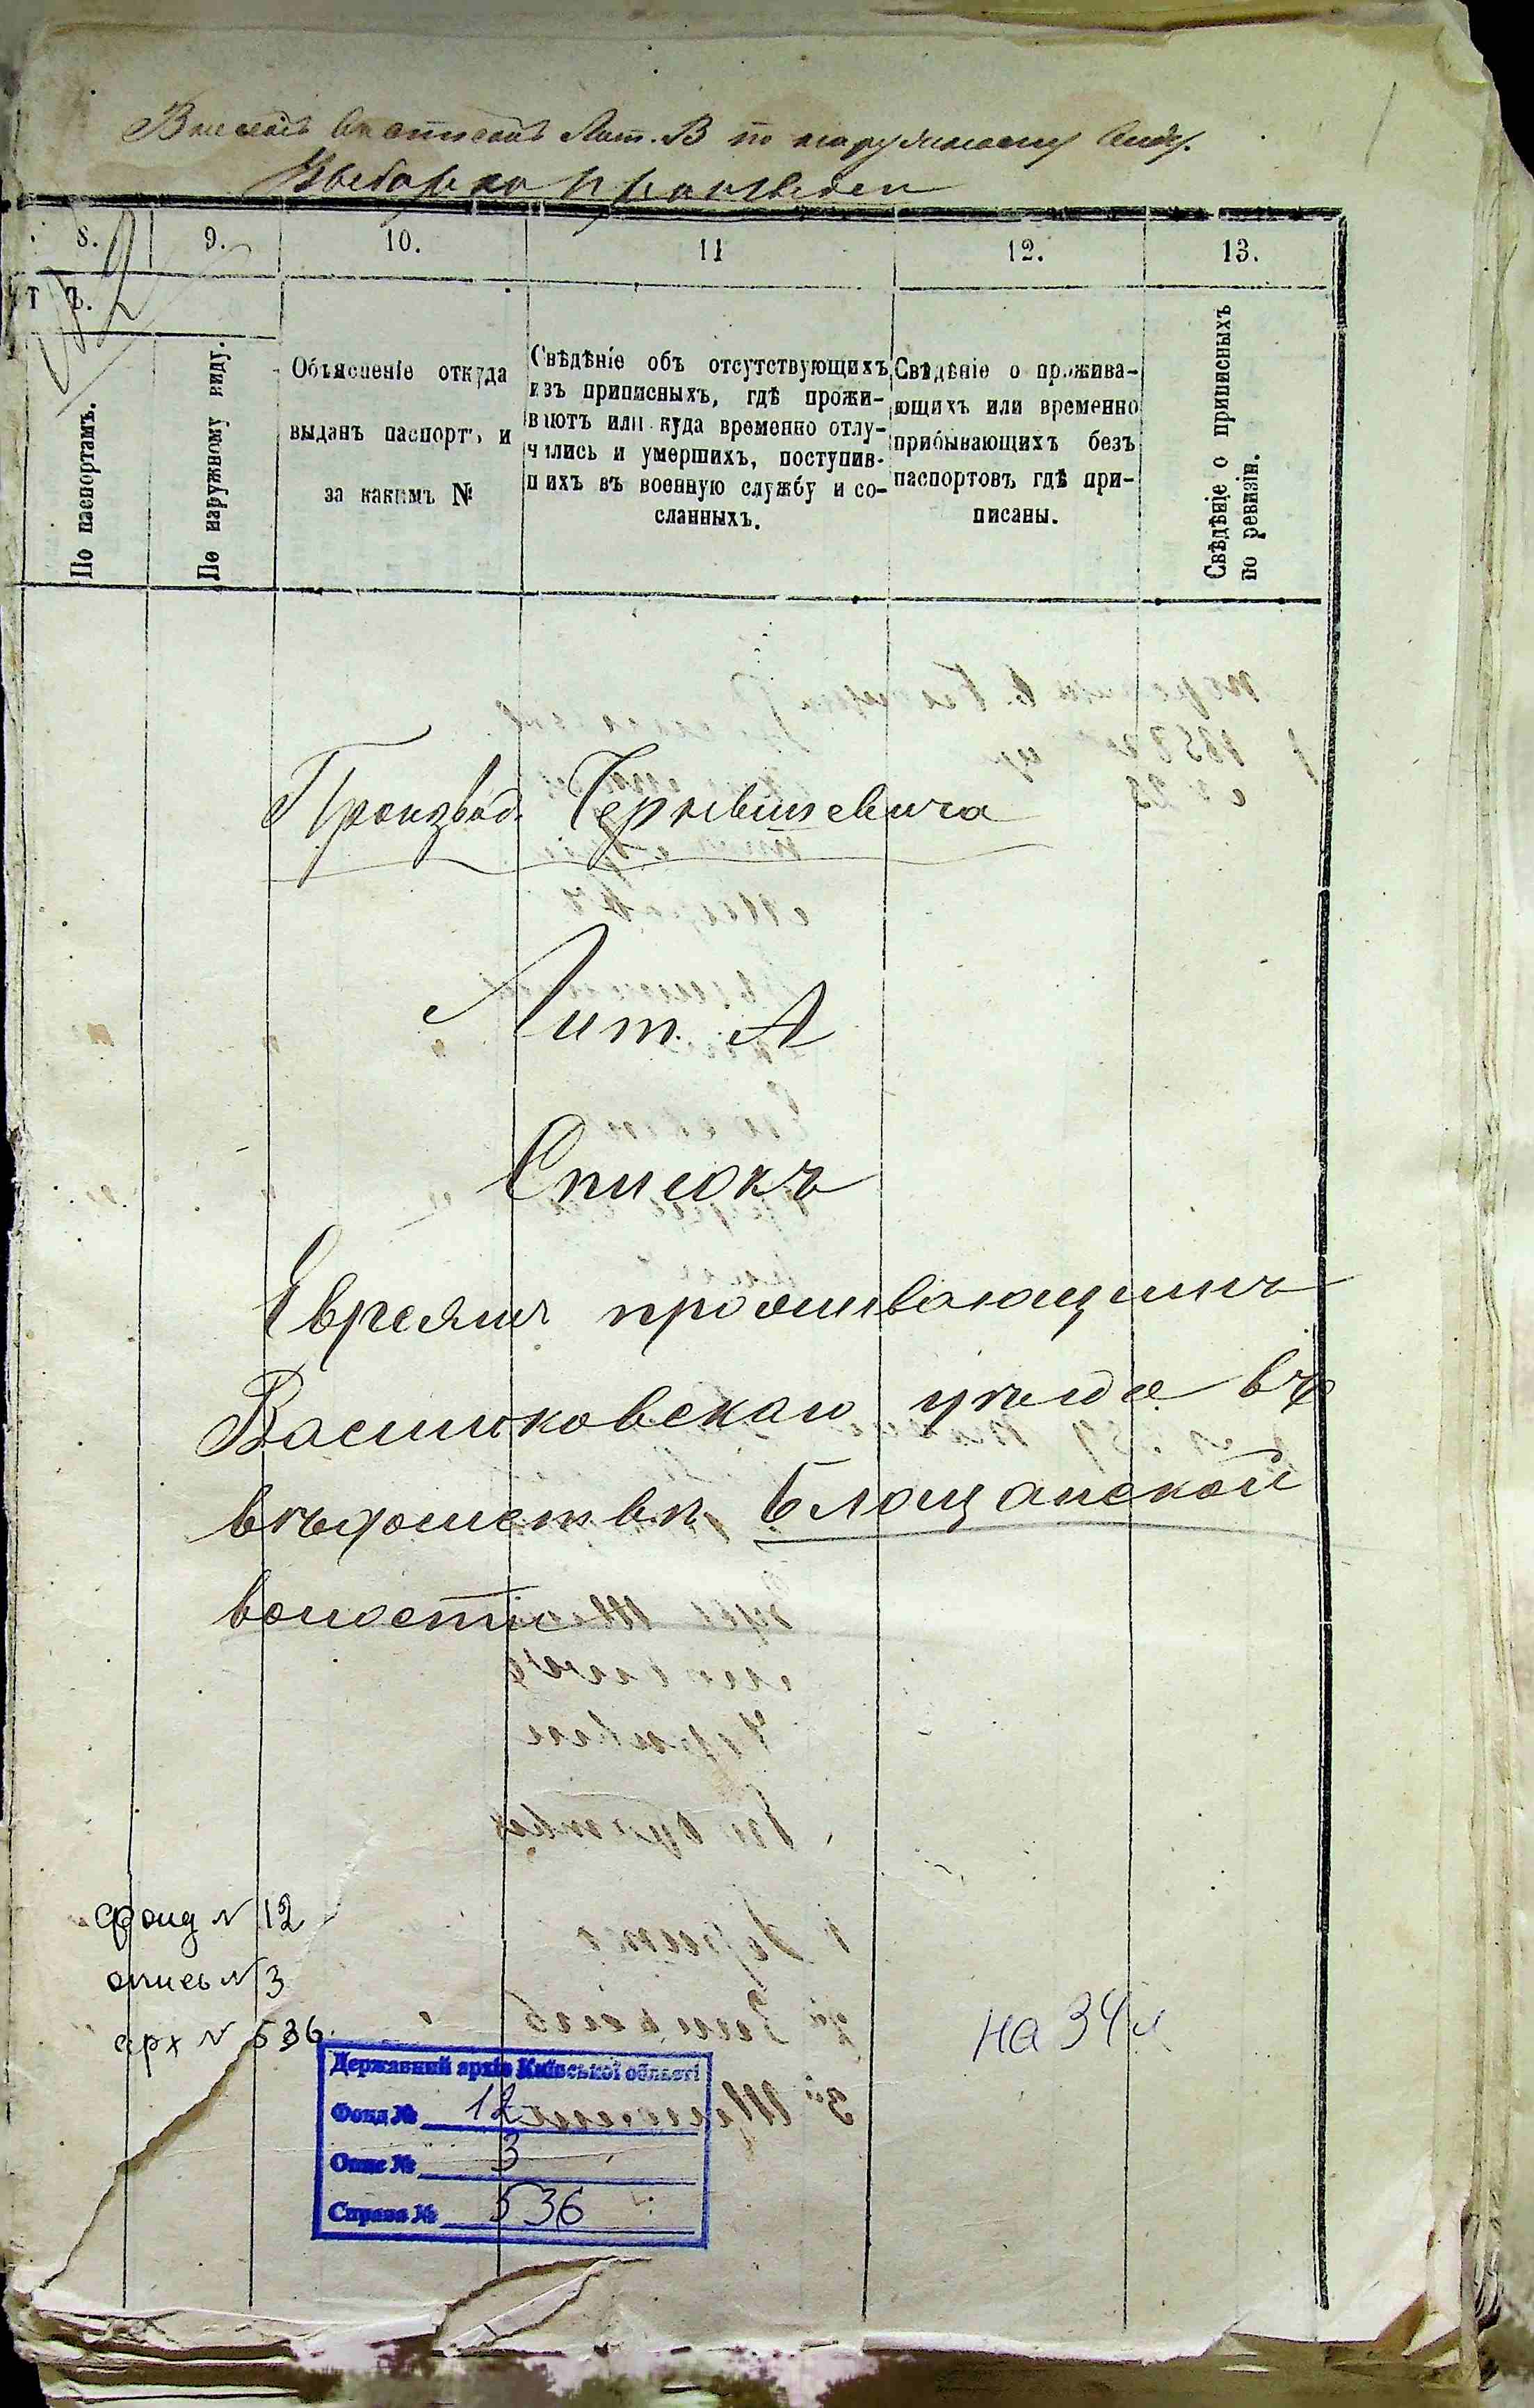 Лит. В по наружному виду.
8. 9. 10. 11 12. 13.
Т Ъ.
По паспортамъ.
По наружному виду.
Объясненіе откуда
выданъ паспортъ и
за какимъ №
Свѣдѣніе объ отсутствующихъ
изъ приписныхъ, гдѣ прожи-
ваютъ или куда временно отлу-
чились и умершихъ, поступив-
шихъ въ военную службу и со-
сланныхъ.
Свѣдѣніе о прожива-
ющихъ или временно
прибывающихъ безъ
паспортовъ гдѣ при-
писаны.
Свѣдѣніе о приписныхъ
по ревизіи.
Производ.
Лит. А
Списокъ
Евреямъ проживающимъ
Васильковскаго уѣзда въ
вѣдомствѣ Блощанской
волости
фонд N 12
опись N 3
арх N 536
на 34 л
Державний архів Київської області
Фонд № 12
Опис № 3
Справа № 536